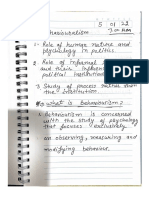 5 01 22
Behaviouralism
1- Role of human nature and
psychology in politics.
2. Role of informal
and their influence
political institution
3. Study of process rather
than the institution
what is Behaviorism?
Behaviorism is concerned
with the study of psychology
that focuses exclusively
on observing, measuring and
modifying behaviour.